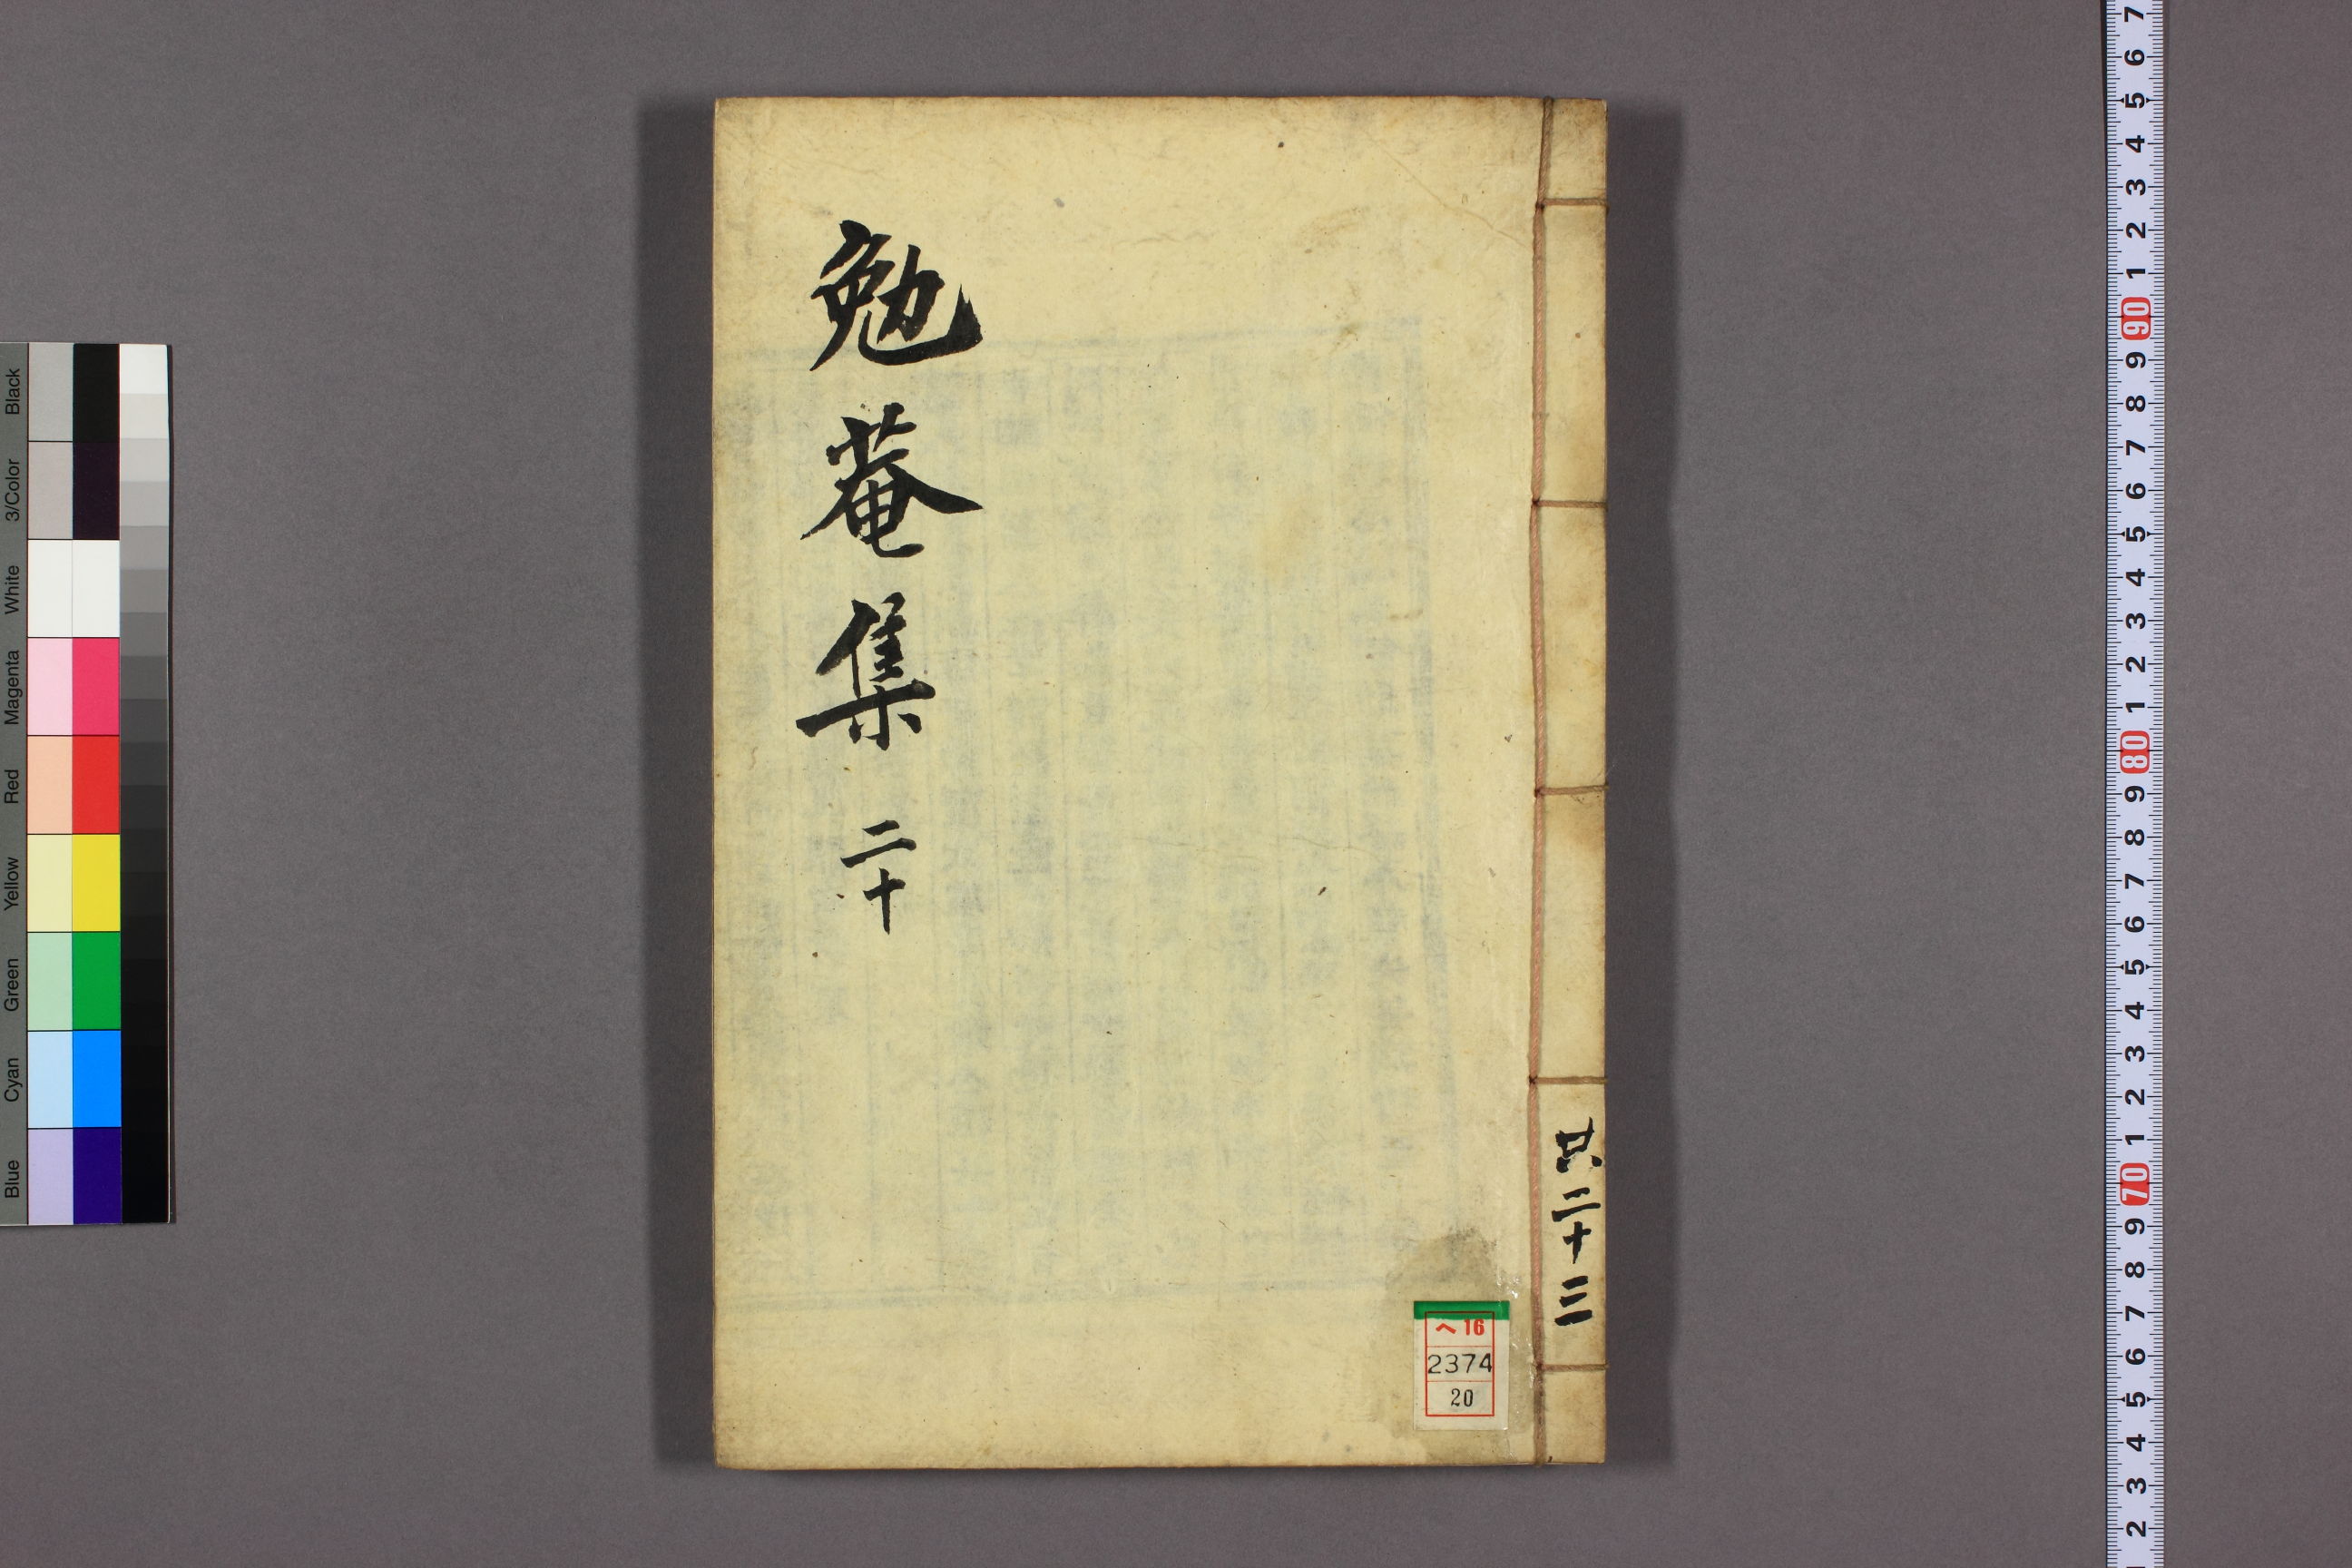 勉菴集 二十
共二十三
ヘ16
2374
20
Black
3/Color
White
Magenta
Red
Yellow
Green
Cyan
Blue
7 6 5 4 3 2 1 90 9 8 7 6 5 4 3 2 1 80 9 8 7 6 5 4 3 2 1 70 9 8 7 6 5 4 3 2